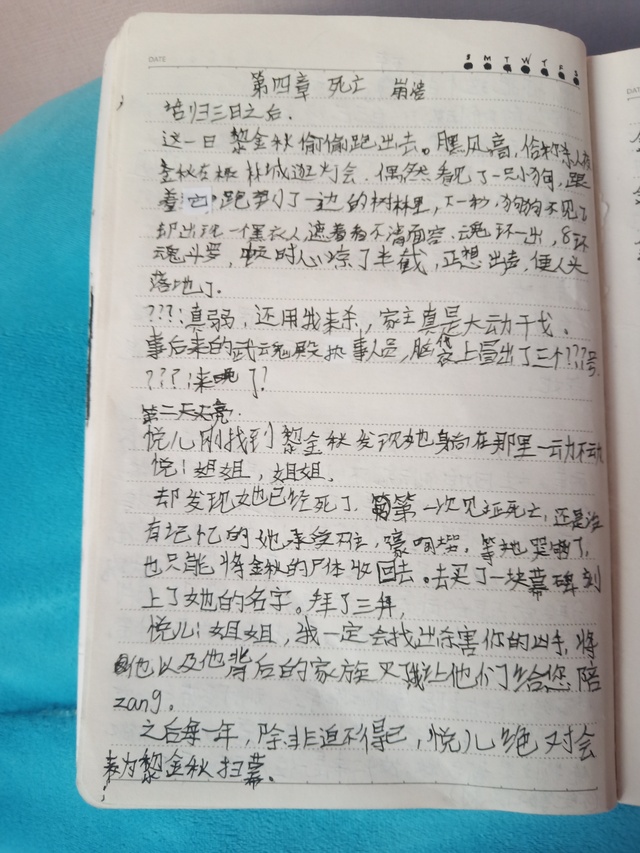 DATE
S M T W T F S
第四章 死亡 崩溃
培归三日之后.
这一日黎金秋偷偷跑出去。风高,
金秋在 林城逛灯会.偶然看见了一只小狗,跟
着 跑到了一边的树林里,下一秒,狗狗不见了
却出现一个黑衣人,遮着看不清面容.魂环一出,8环
魂斗罗,顿时心凉了半截,正想出声,便人头
落地了.
???:真弱,还用我来杀,家主真是大动干戈。
事后来的武魂殿执事人员,脑袋上冒出了三个???号.
???:来晚了?
第二天天亮.
悦儿刚找到黎金秋发现她身向在那里一动不动
悦:姐姐,姐姐.
却发现她已经死了.第一次见证死亡,还是没
有记忆的她承受不住,嚎啕 .等她哭够了,
也只能将金秋的尸体收回去。去买了一块幕碑刻
上了她的名字。拜了三拜,
悦儿:姐姐,我一定会找出杀害你的凶手,将
他以及他背后的家族灭 让他们给您陪
zang。
之后每一年,除非迫不得已,悦儿绝对会
来为黎金秋扫幕.
DATE